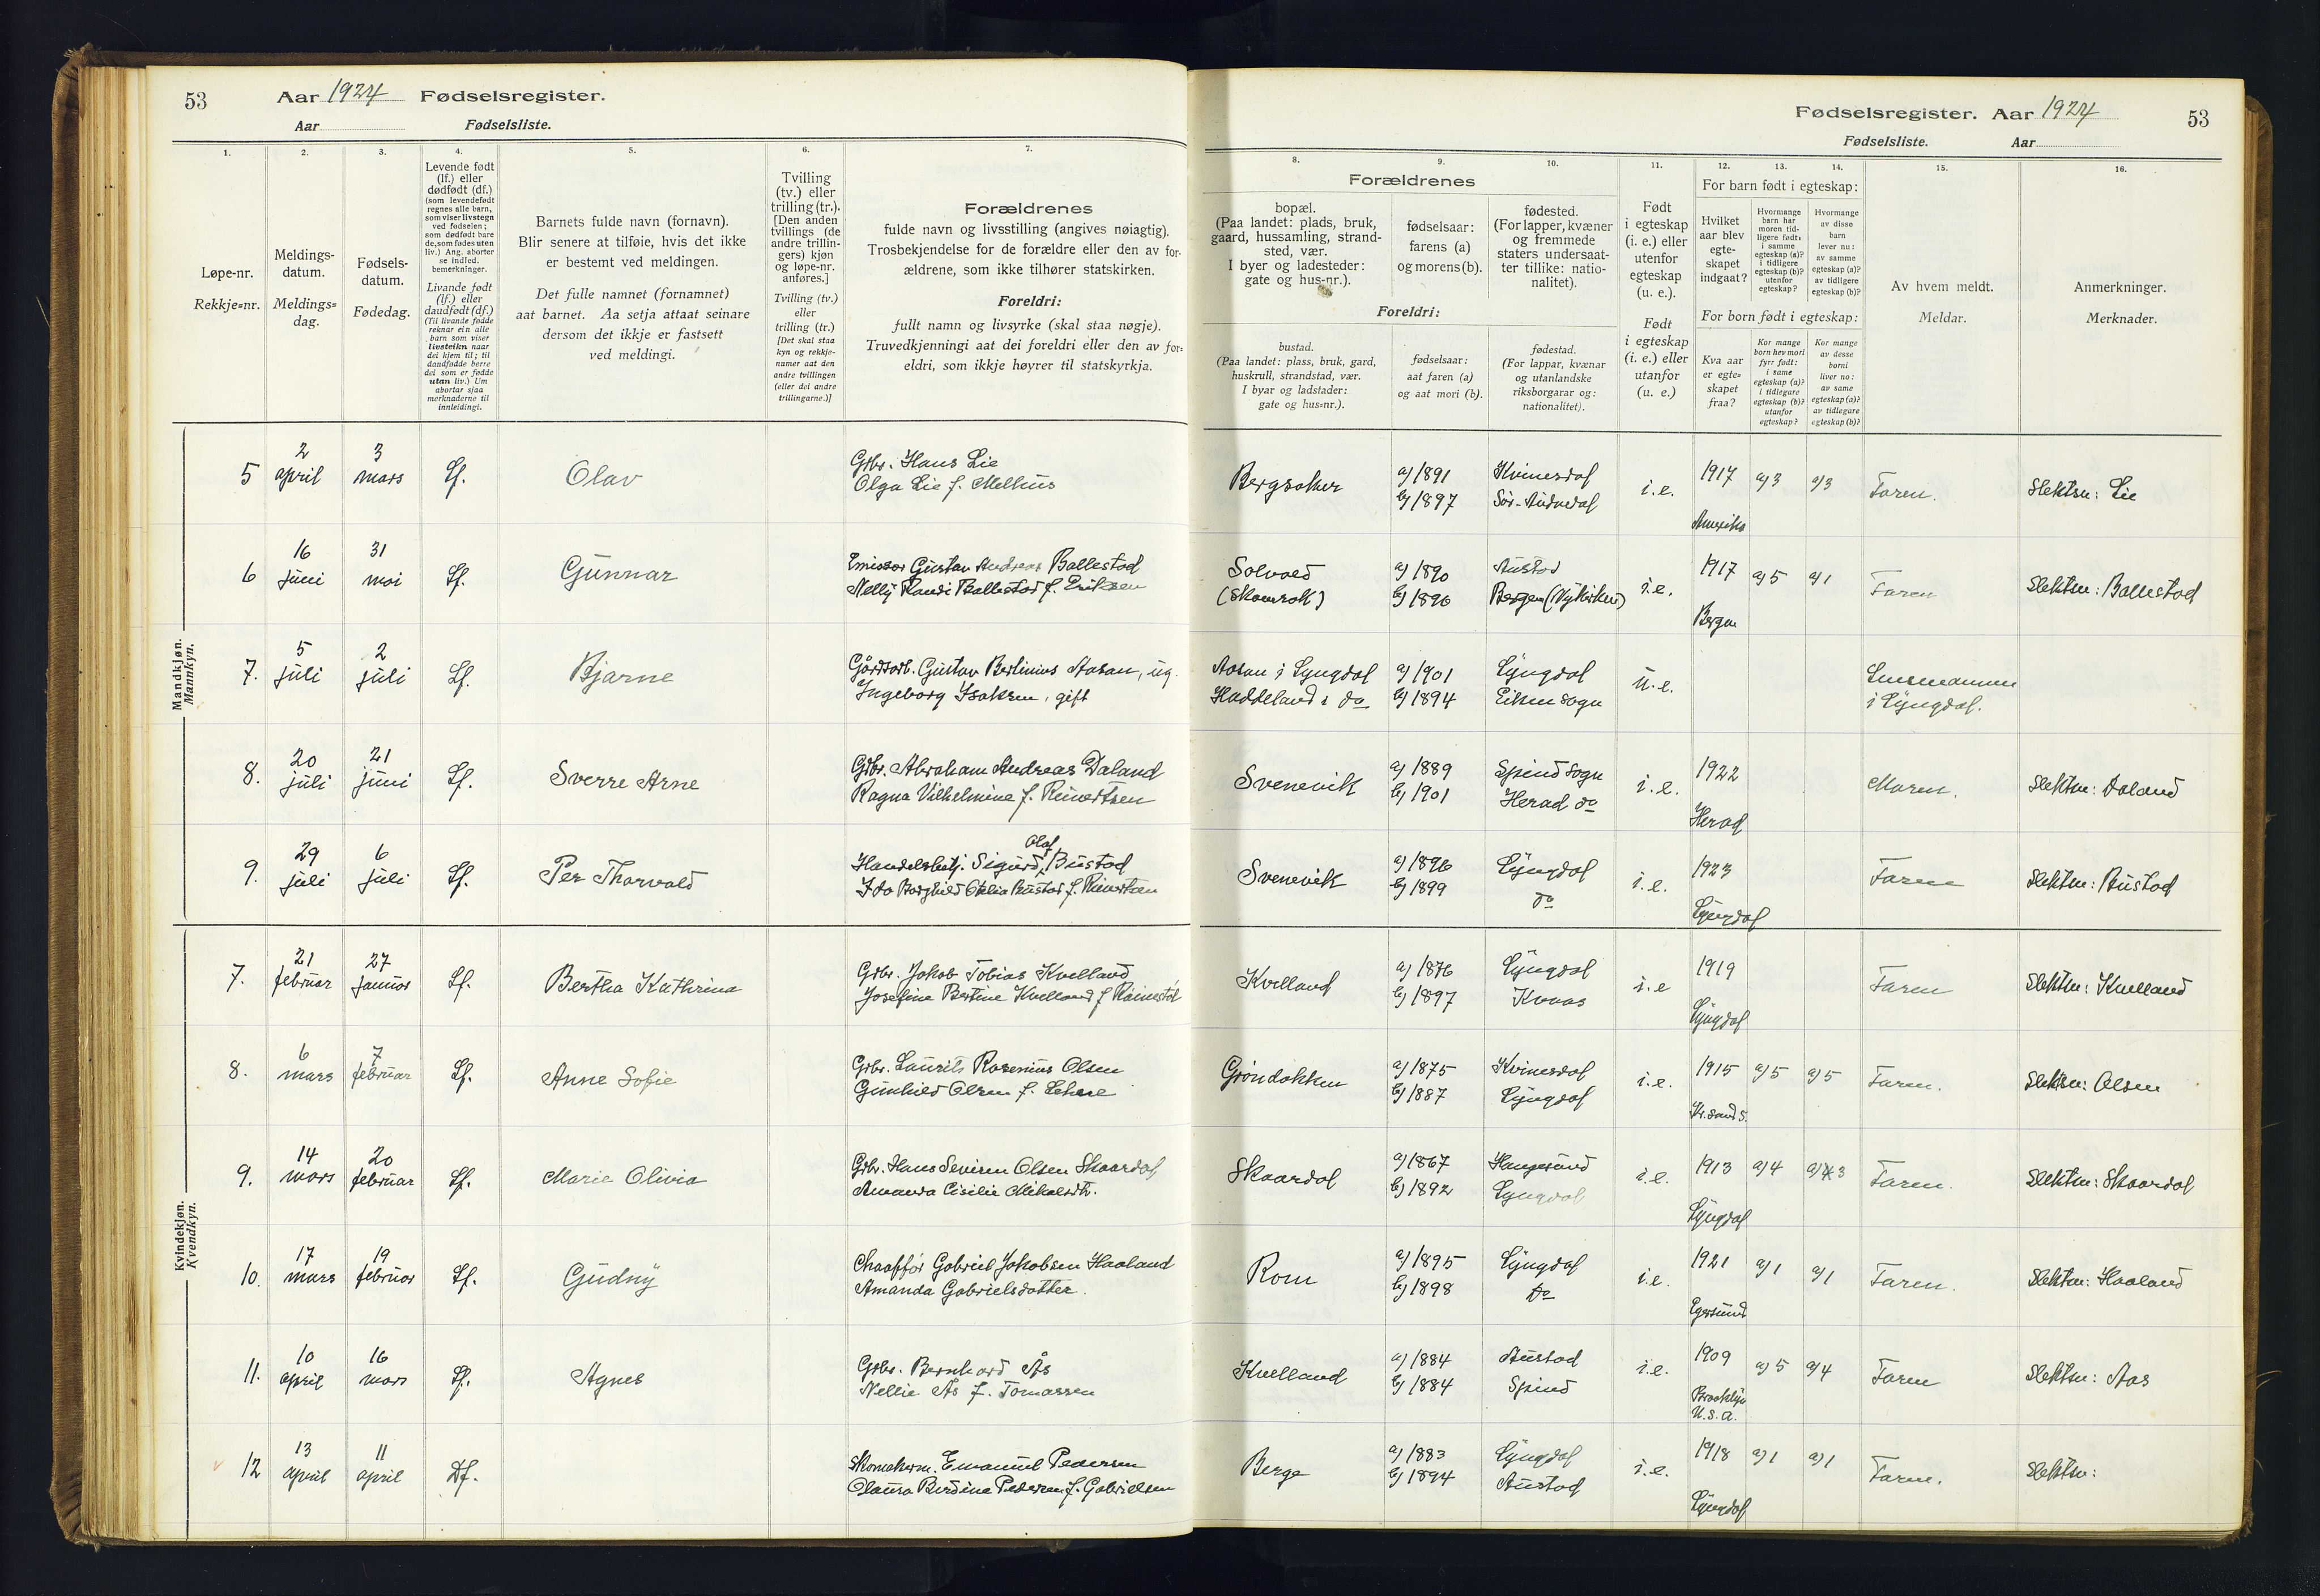 53
Aar 1924 Fødselsregister.
Aar Fødselsliste.
1.
2.
3.
4.
5.
6.
7.
Løpe-nr.
Rekkje=nr.
Meldings-
datum.
Meldings=
dag.
Fødsels-
datum.
Fødedag.
Levende født
(lf.) eller
dødfødt (df.)
(som levendefødt
regnes alle barn,
som viser livstegn
ved fødselen;
som dødfødt bare
de, som fødes uten
liv.) Ang. aborter
se indled.
bemerkninger.
Livande født
(lf.) eller
daudfødt (df.)
(Til livande fødde
reknar ein alle
barn som viser
livsteikn naar
dei kjem til; til
daudfødde berre
dei som er fødde
utan liv.) Um
abortar sjaa
merknaderne til
innleidingi.
Barnets fulde navn (fornavn).
Blir senere at tilføie, hvis det ikke
er bestemt ved meldingen.
Det fulle namnet (fornamnet)
aat barnet. Aa setja attaat seinare
dersom det ikkje er fastsett
ved meldingi.
Tvilling
(tv.) eller
trilling (tr.).
[Den anden
tvillings (de
andre trillin-
gers) kjøn
og løpe-nr.
anføres.]
Tvilling (tv.)
eller
trilling (tr.)
[Det skal staa
kyn og rekkje-
numer aat den
andre tvillingen
(eller dei andre
trillingarne.)]
Forældrenes
fulde navn og livsstilling (angives nøiagtig).
Trosbekjendelse for de forældre eller den av for-
ældrene, som ikke tilhører statskirken.
Foreldri:
fullt namn og livsyrke (skal staa nøgje).
Truvedkjenningi aat dei foreldri eller den av for=
eldri, som ikkje høyrer til statskyrkja.
Mandkjøn.
Mannkyn.
5
2
april
3
mars
Lf.
Olav
Gbr. Hans Lie
Olga Lie f. Melhus
6
16
juni
31
mai
Lf.
Gunnar
Emissær Gustav Andreas Ballestad
Nelly Randi Ballestad f. Eriksen
7.
5
juli
2
juli
Lf.
Bjarne
Gårdsarb. Gustav Bertinius Aasan, ug.
Ingeborg Isaksen, gift
8.
20
juli
21
juni
Lf.
Sverre Arne
Gbr. Abraham Andreas Daland
Ragna Vilhelmine f. Reinertsen
9.
29
juli
6
juli
Lf.
Per Thorvald
Olaf
Handelsbetj. Sigurd Bustad
Ida Borghild Bustad f. Reinertsen
Kvindekjøn.
Kvendkyn.
7.
21
februar
27
januar
Lf.
Bertha Kathrine
Gbr. Jakob Tobias Kvelland
Josefine Bertine Kvelland f.
8.
6
mars
7
februar
Lf.
Anne Sofie
Gbr. Laurits Rosenius Olsen
Gunhild Olsen f.
9.
14
mars
20
februar
Lf.
Marie Olivia
Gbr. Hans Severin Olsen Skaardal
Amanda Cicilie Mikalsdtr.
10.
17
mars
19
februar
Lf.
Gudny
Chaaffør Gabriel Jakobsen Haaland
Amanda Gabrielsdatter.
11.
10
april
16
mars
Lf.
Agnes
Gbr. Bernhard Ås
Nellie Ås f. Tomassen
12
13
april
11
april
Df.
Skomakerm. Emanuel Pedersen
Olausa Pedersen f. Gabrielsen
Fødselsregister. Aar 1924
53
Fødselsliste. Aar
8.
9.
10.
11.
12.
13.
14.
15.
16.
Forældrenes
bopæl.
(Paa landet: plads, bruk,
gaard, hussamling, strand-
sted, vær.
I byer og ladesteder:
gate og hus-nr.).
fødselsaar:
farens (a)
og morens (b).
fødested.
(For lapper, kvæner
og fremmede
staters undersaat-
ter tillike: natio-
nalitet).
Foreldri:
bustad.
(Paa landet: plass, bruk, gard,
huskrull, strandstad, vær.
I byar og ladstader:
gate og hus=nr.).
fødselsaar:
aat faren (a)
og aat mori (b).
fødestad.
(For lappar, kvænar
og utanlandske
riksborgarar og:
nationalitet).
Født
i egteskap
(i. e.) eller
utenfor
egteskap
(u. e.).
Født
i egteskap
(i. e.) eller
utanfor
(u. e.)
For barn født i egteskap:
Hvilket
aar blev
egte-
skapet
indgaat?
Hvormange
barn har
moren tid-
ligere født:
i samme
egteskap (a)?
i tidligere
egteskap (b)?
utenfor
egteskap?
Hvormange
av disse
barn
lever nu:
av samme
egteskap (a)?
av tidligere
egteskap (b)?
For born født i egteskap:
Kva aar
er egte=
skapet
fraa?
Kor mange
born hev mori
fyrr født:
i same
egteskap (a)?
i tidlegare
egteskap (b)?
utanfor
egteskap?
Kor mange
av desse
borni
liver no:
av same
egteskap (a)?
av tidlegare
egteskap (b)?
Av hvem meldt.
Meldar.
Anmerkninger.
Merknader.
Bergsaker
a) 1891
b) 1897
Kvinesdal
Sør-Audnedal
i.e.
1917
Amerika
a) 3
a) 3
Faren.
Slektsn: Lie
Solvold
a) 1890
b) 1896
Austad
Bergen (Nykirken)
i.e.
1917
Bergen
a) 5
a) 1
Faren
Slektsn: Ballestad
Aasan i Lyngdal
Haddeland i do
a) 1901
b) 1894
Lyngdal
Eiken sogn
u.e.
Lensmannen
i Lyngdal.
Svenevik
a) 1889
b) 1901
Spind sogn
Herad do
i.e.
1922
Herad
Moren.
Slektsn: Daland
Svenevik
a) 1896
b) 1899
Lyngdal
do
i.e.
1923
Lyngdal
Faren
Slektsn: Bustad
Kvelland
a) 1876
b) 1897
Lyngdal
Kvaas
i.e
1919
Lyngdal
Faren
Slektsn: Kvelland
Grøndokken
a) 1875
b) 1887
Kvinesdal
Lyngdal
i.e.
1915
Kr.sand S.
a) 5
a) 5
Faren.
Slektsn: Olsen
Skaardal
a) 1867
b) 1892
Haugesund
Lyngdal
i.e.
1913
Lyngdal
a) 4
a) 3
Faren.
Slektsn: Skaardal
Rom
a) 1895
b) 1898
Lyngdal
Do
i.e.
1921
Egersund
a) 1
a) 1
Faren.
Slektsn: Haaland
Kvelland
a) 1884
b) 1884
Austad
Spind
i.e.
1909
Brooklyn
U.S.A.
a) 5
a) 4
Faren
Slektsn: Aas
Berge
a) 1883
b) 1894
Lyngdal
Austad
i.e.
1918
Lyngdal
a) 1
a) 1
Faren.
Slektsn: